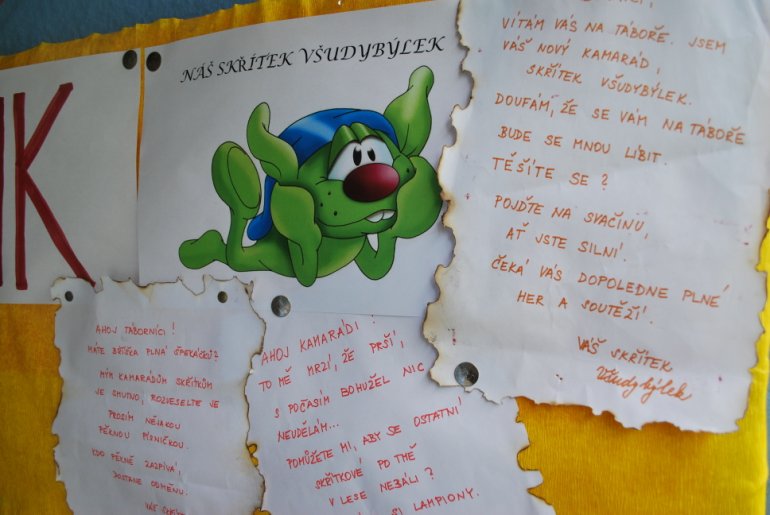 NÁŠ SKŘÍTEK VŠUDYBÝLEK
VÍTÁM VÁS NA TÁBOŘE. JSEM
VÁŠ NOVÝ KAMARÁD,
SKŘÍTEK VŠUDYBÝLEK.
DOUFÁM, ŽE SE VÁM NA TÁBOŘE
BUDE SE MNOU LÍBIT.
TĚŠÍTE SE?
POJĎTE NA SVAČINU,
AŤ JSTE SILNÍ.
ČEKÁ VÁS DOPOLEDNE PLNÉ
HER A SOUTĚŽÍ.
VÁŠ SKŘÍTEK
Všudybýlek
AHOJ TÁBORNÍCI!
MÁTE BŘÍŠKA PLNÁ ŠPEKÁČKŮ?
MÝM KAMARÁDŮM SKŘÍTKŮM
JE SMUTNO, ROZVESELTE JE
PROSÍM NĚJAKOU
PĚKNOU PÍSNIČKOU.
KDO PĚKNĚ ZAZPÍVÁ,
DOSTANE ODMĚNU.
VÁŠ
AHOJ KAMARÁDI!
TO MĚ MRZÍ, ŽE PRŠÍ,
S POČASÍM BOHUŽEL NIC
NEUDĚLÁM...
POMŮŽETE MI, ABY SE OSTATNÍ
SKŘÍTKOVÉ PO TMĚ
V LESE NEBÁLI?
SI LAMPIONY.